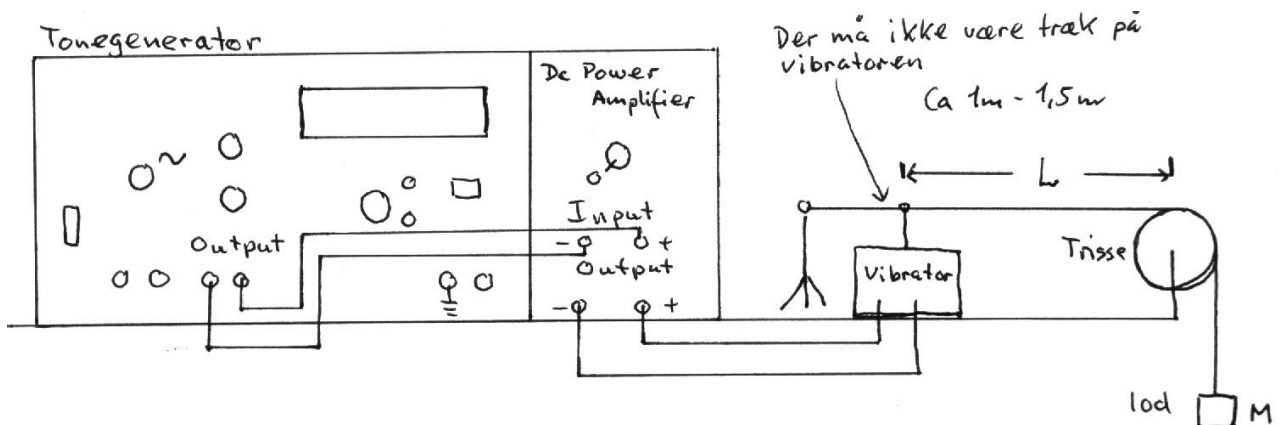 Tonegenerator
Output
Dc Power
Amplifier
Input
- +
Output
- +
Der må ikke være træk på
vibratoren
Ca 1m - 1,5m
L
Vibrator
Trisse
lod M